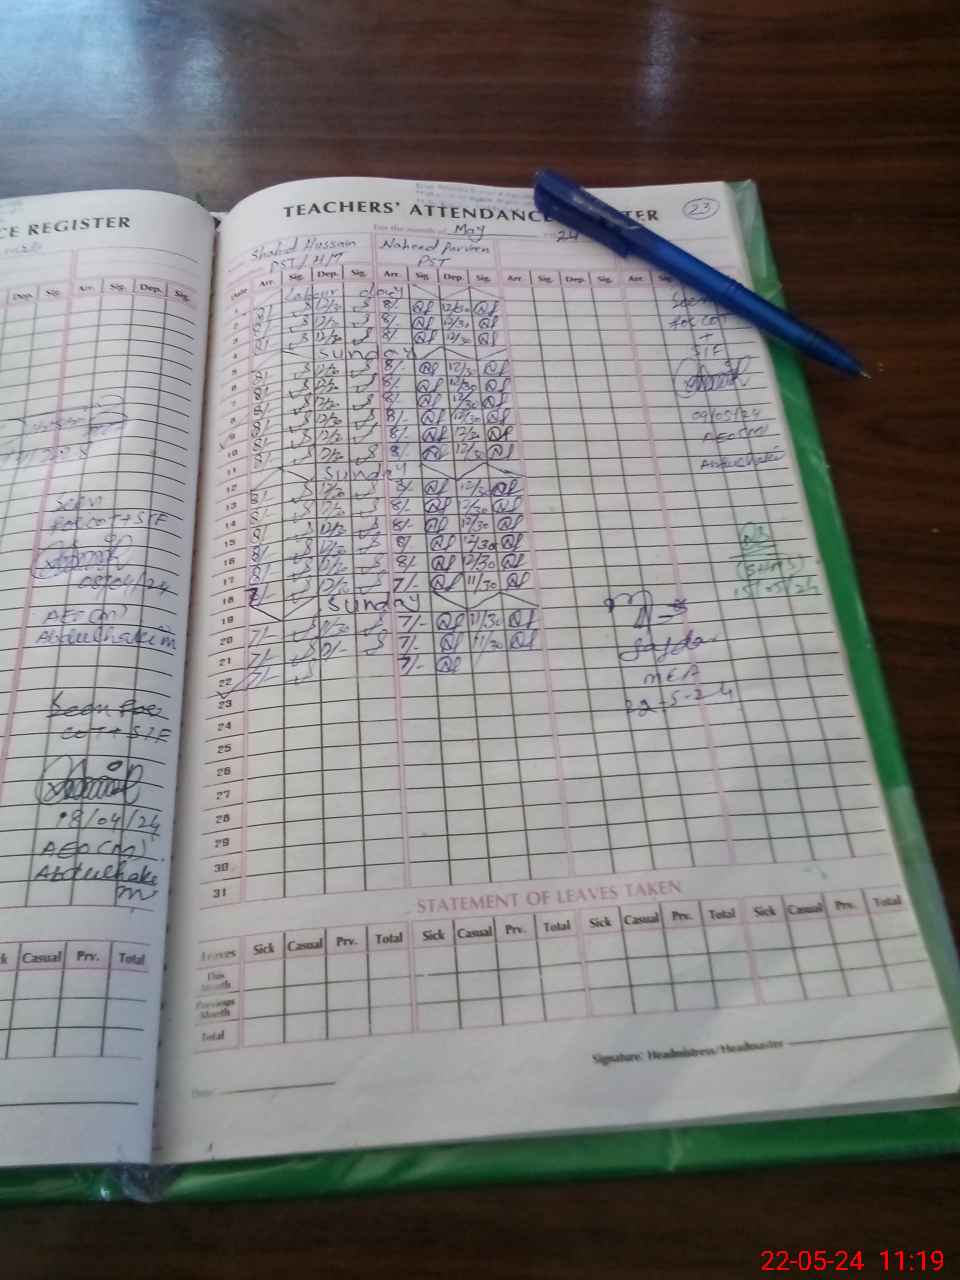 CE REGISTER
Dep. Sig. Arr. Sig. Dep. Sig.
Seen
For COT + SIF
08/04/24
AEO(M)
Abdulhakeem
Seen For
COT + SIF
18/04/24
AEO(M)
Abdulhakeem
Casual Prv. Total
TEACHERS' ATTENDANCE
TER
23
For the month of May
24
Shahid Hussain
PST/HM
Naheed Parveen
PST
Date Arr. Sig. Dep. Sig. Arr. Sig. Dep. Sig. Arr. Sig. Dep. Sig. Arr. Sig.
1 Labour day
2 8/- 12/30 8/- 12/30
3 8/- 12/30 8/- 12/30
4 8/- 12/30 8/- 12/30
5 Sunday
6 8/- 12/30 8/- 12/30
7 8/- 12/30 8/- 12/30
8 8/- 12/30 8/- 12/30
9 8/- 12/30 8/- 12/30
10 8/- 12/30 8/- 12/30
11 8/- 12/30 8/- 12/30
12 Sunday
13 8/- 12/30 8/- 12/30
14 8/- 12/30 8/- 12/30
15 8/- 12/30 8/- 12/30
16 8/- 12/30 8/- 12/30
17 8/- 12/30 8/- 12/30
18 7/- 7/- 11/30
19 Sunday
20 7/- 11/30 7/- 11/30
21 7/- 7/- 11/30
22 7/- 7/-
23
24
25
26
27
28
29
30
31
Seen
For COT
+
SIF
09/05/24
Abdulhakeem
15/05/24
MEA
22-5-24
STATEMENT OF LEAVES TAKEN
Leaves Sick Casual Prv. Total Sick Casual Prv. Total Sick Casual Prv. Total Sick Casual Prv. Total
This Month
Previous Month
Total
Signature: Headmistress/Headmaster
Date
22-05-24 11:19